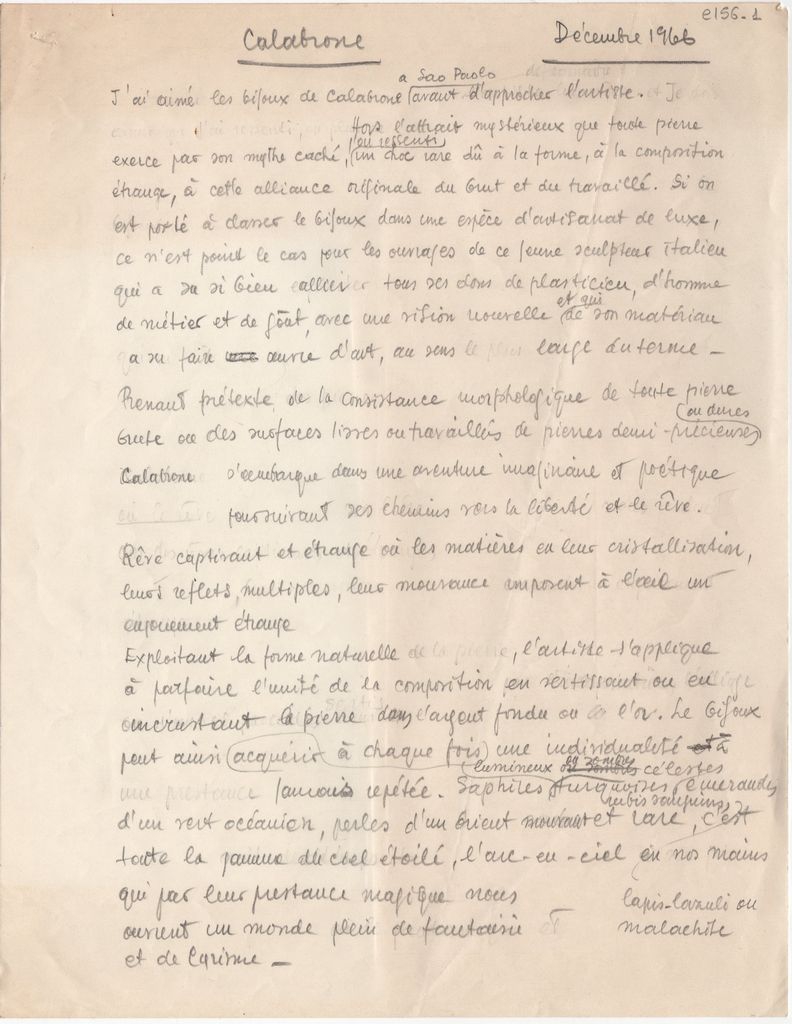 e156-1
Calabrone Décembre 1966
a Sao Paolo
J'ai aimé les bijoux de Calabrone avant d'approcher l'artiste.
Hors l'attrait mystérieux que toute pierre
ou ressenti
exerce par son mythe caché, un choc rare dû à la forme, à la composition
étrange, à cette alliance originale du brut et du travaillé. Si on
est porté à classer le bijoux dans une espèce d'artisanat de luxe,
ce n'est point le cas pour les ouvrages de ce jeune sculpteur italien
qui a su si bien allier tous ses dons de plasticien, d'homme
et qui
de métier et de goût, avec une vision nouvelle de son matériau
a su faire œuvre d'art, au sens le plus large du terme -
Prenant prétexte de la consistance morphologique de toute pierre
ou dures
brute ou des surfaces lisses ou travaillés de pierres demi-précieuses
Calabrone s'embarque dans une aventure imaginaire et poétique
poursuivant ses chemins vers la liberté et le rêve.
Rêve captivant et étrange où les matières en leur cristallisation,
leurs reflets, multiples, leur mouvance imposent à l'œil un
enjouement étrange
Exploitant la forme naturelle de la pierre, l'artiste s'applique
à parfaire l'unité de la composition en sertissant ou en
incrustant la pierre dans l'argent fondu ou l'or. Le bijoux
peut ainsi acquérir à chaque fois une individualité
lumineux ou sombres célestes
jamais répétée. Saphires turquoises émeraudes
rubis sanguins
d'un vert océanien, perles d'un orient mouvant et rare, c'est
toute la gamme du ciel étoilé, l'arc-en-ciel en nos mains
qui par leur prestance magique nous
lapis-lazuli ou
ouvrent un monde plein de fantaisie
malachite
et de lyrisme -